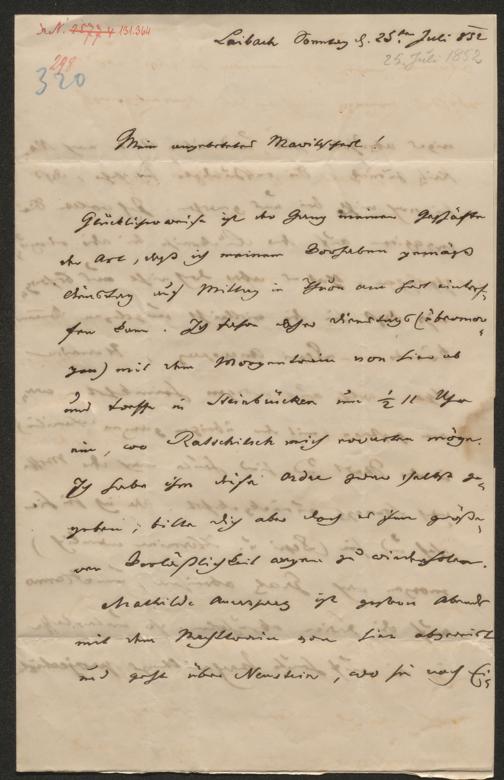 J. N. 2577 4 131.364
298
320
Laibach Sonntag d. 25ten Juli 852
25. Juli 1852
Mein angebetetes !
Glücklicherweise ist der Gang meiner Geschäfte
der Art, daß ich meinem Vorhaben gemäß
Dienstag auf Mittag in Thurn am Hart eintref-
fen kann. Ich fahre daher Dienstags (übermor-
gen) mit dem Morgentrain von hier ab
und treffe in Steinbrücken um ½ 11 Uhr
ein, wo Ratschitsch mich erwarten möge.
Ich habe ihm diese Ordre zwar selbst ge-
geben; bitte dich aber doch es ihm größe-
rer Verläßlichkeit wegen zu wiederholen.
Mathilde Auersperg ist gestern Abends
mit dem Nachttrain von hier abgereist
und geht über , wo sie nach